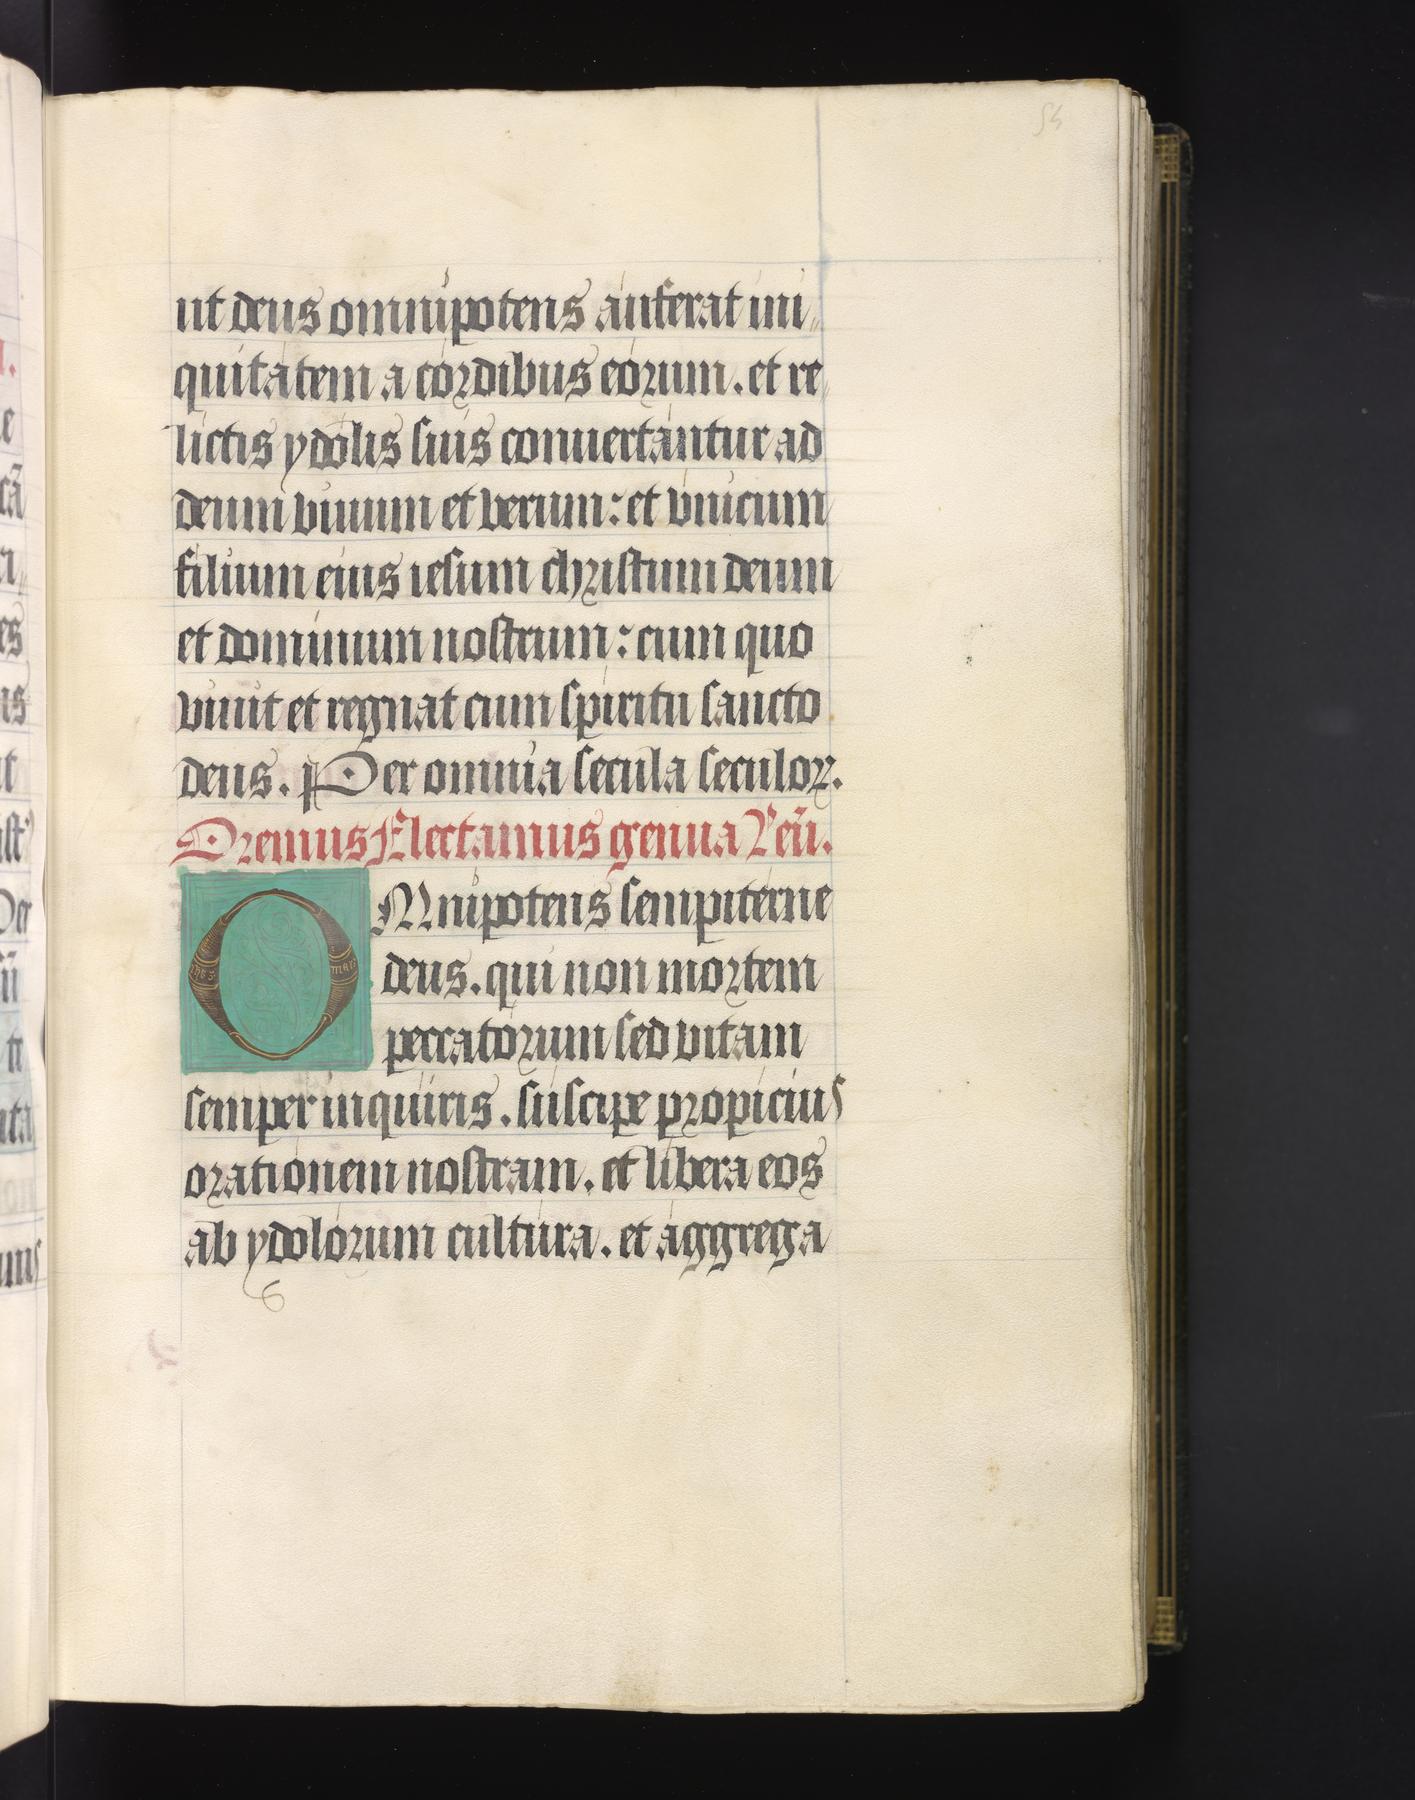 54
ut deus omnipotens auferat ini„
quitatem a cordibus eorum. et re„
lictis ydolis suis conuertantur ad
deum viuum et verum: et vnicum
filium eius iesum christum deum
et dominum nostrum: cum quo
viuit et regnat cum spiritu sancto
deus. Per omnia secula seculoꝝ.
Oremus Flectamus genua Leū.
OMnipotens sempiterne
deus. qui non mortem
peccatorum sed vitam
semper inquiris. suscipe propicius
orationem nostram. et libera eos
ab ydolorum cultura. et aggrega